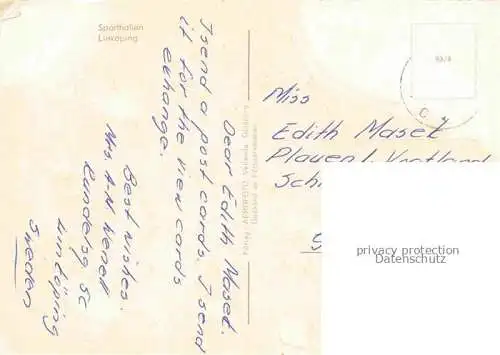 Sporthallen
Linköping
Dear Edith Maset.
I send a post cards. I send
it for the view cards
exhange.
Best wishes.
Mrs. A-M
Lundebg 5c
Linköping
Sweden
Miss
Edith Maset
Plauen i. Vogtland
Sch
privacy protection
Datenschutz